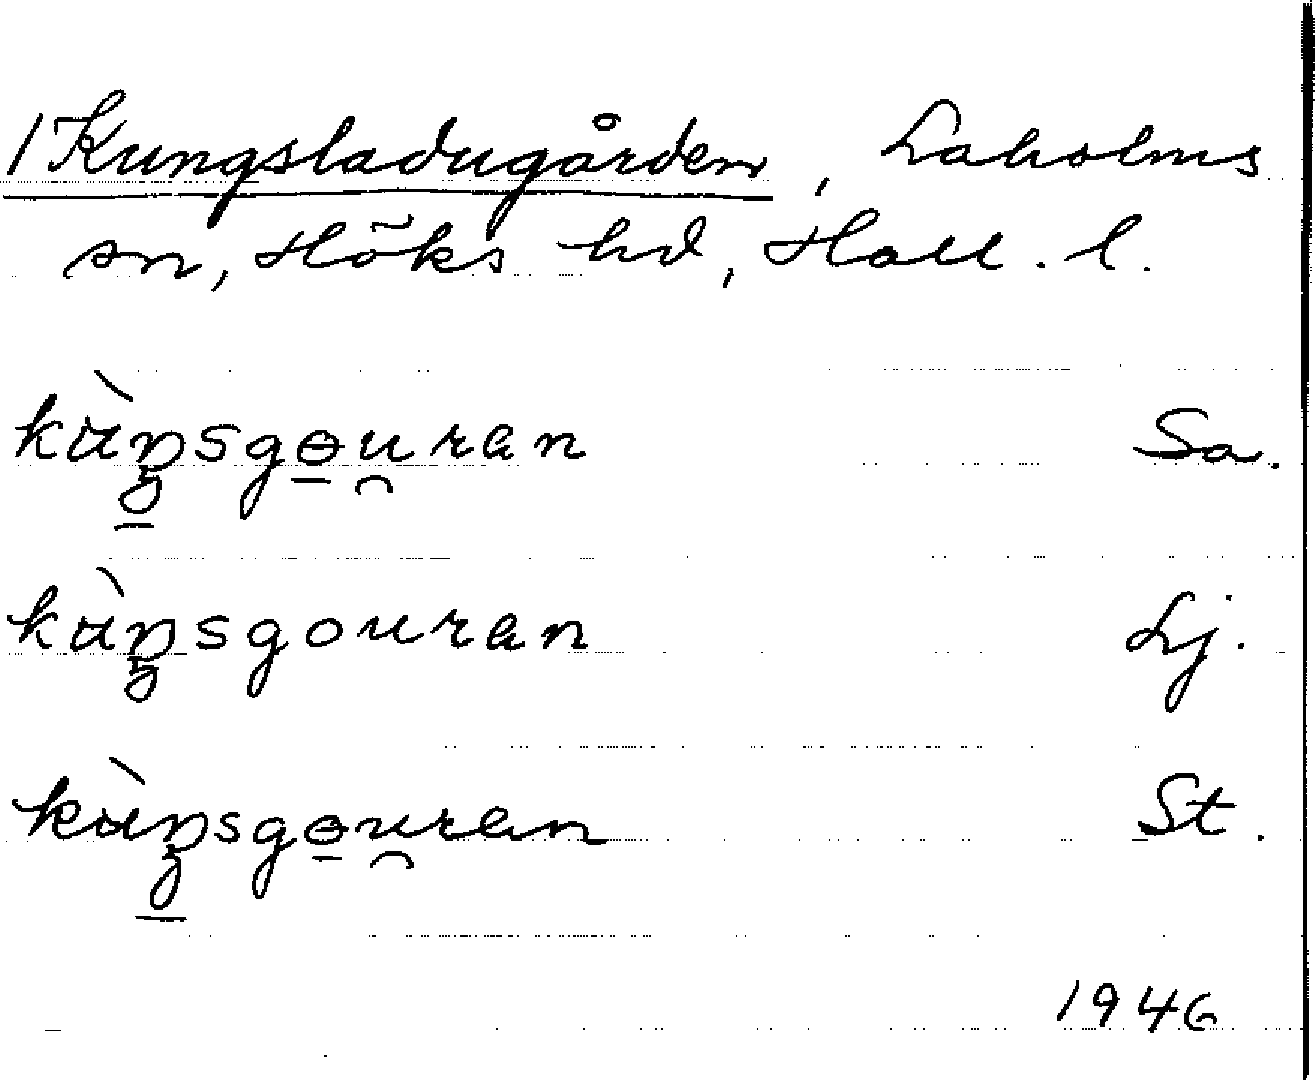 /Kungsladugården, Laholms
sn, Höks hd, Hall. l.
kùŋsgɵu̯ran Sa.
kùŋsgouran Lj.
kùŋsgɵu̯ran St.
1946